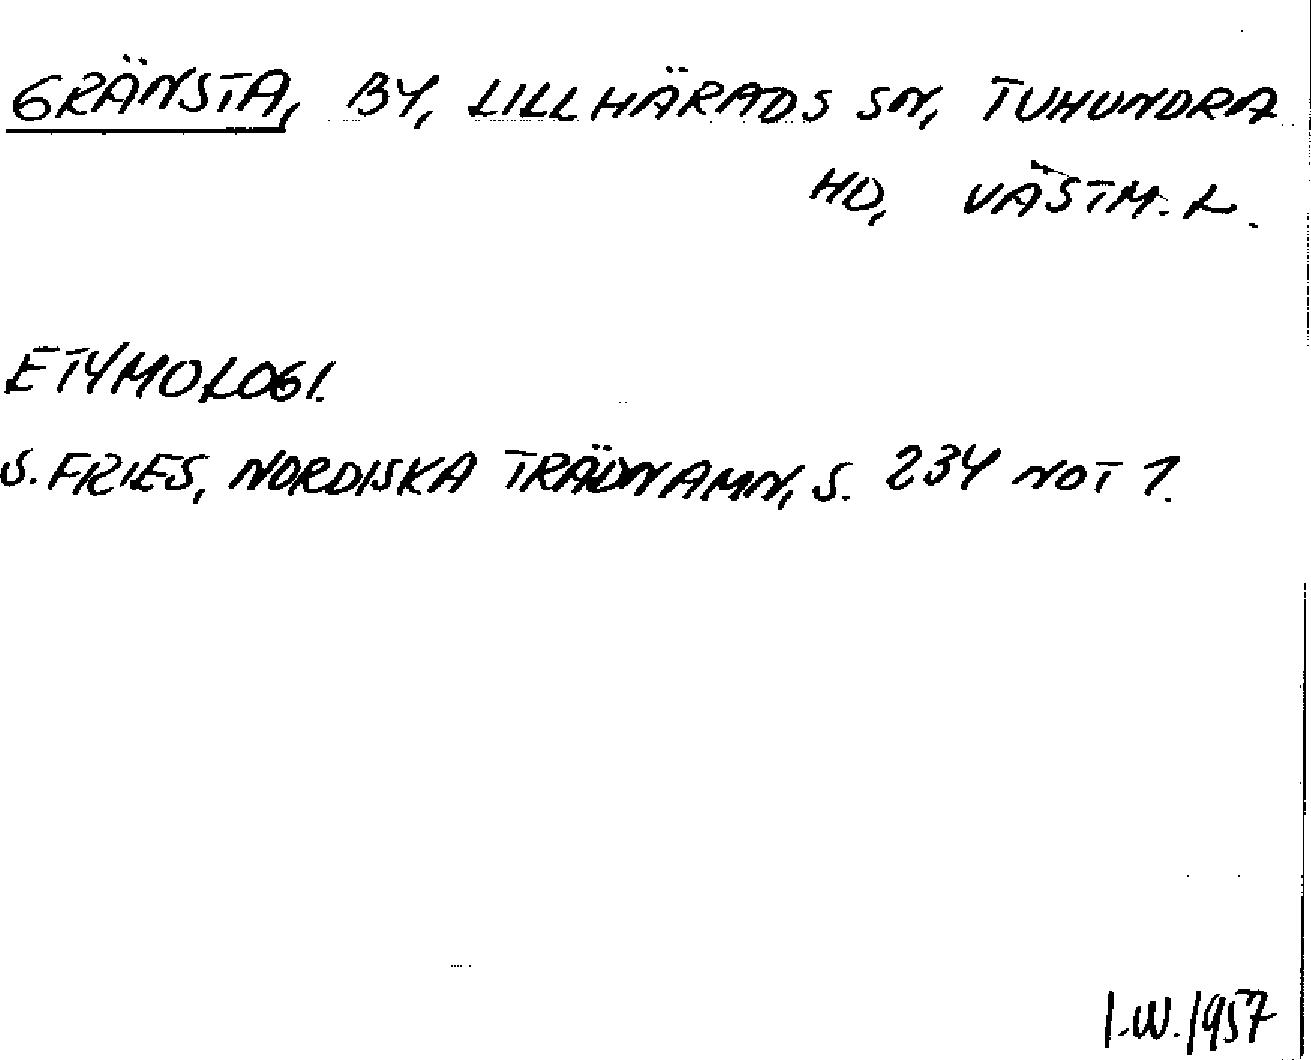 GRÄNSTA, BY, LILLHÄRADS SN, TUHUNDRA
HD, VÄSTM. L.
ETYMOLOGI.
S. FRIES, NORDISKA TRÄDNAMN, S. 234 NOT 1.
I.W. 1957